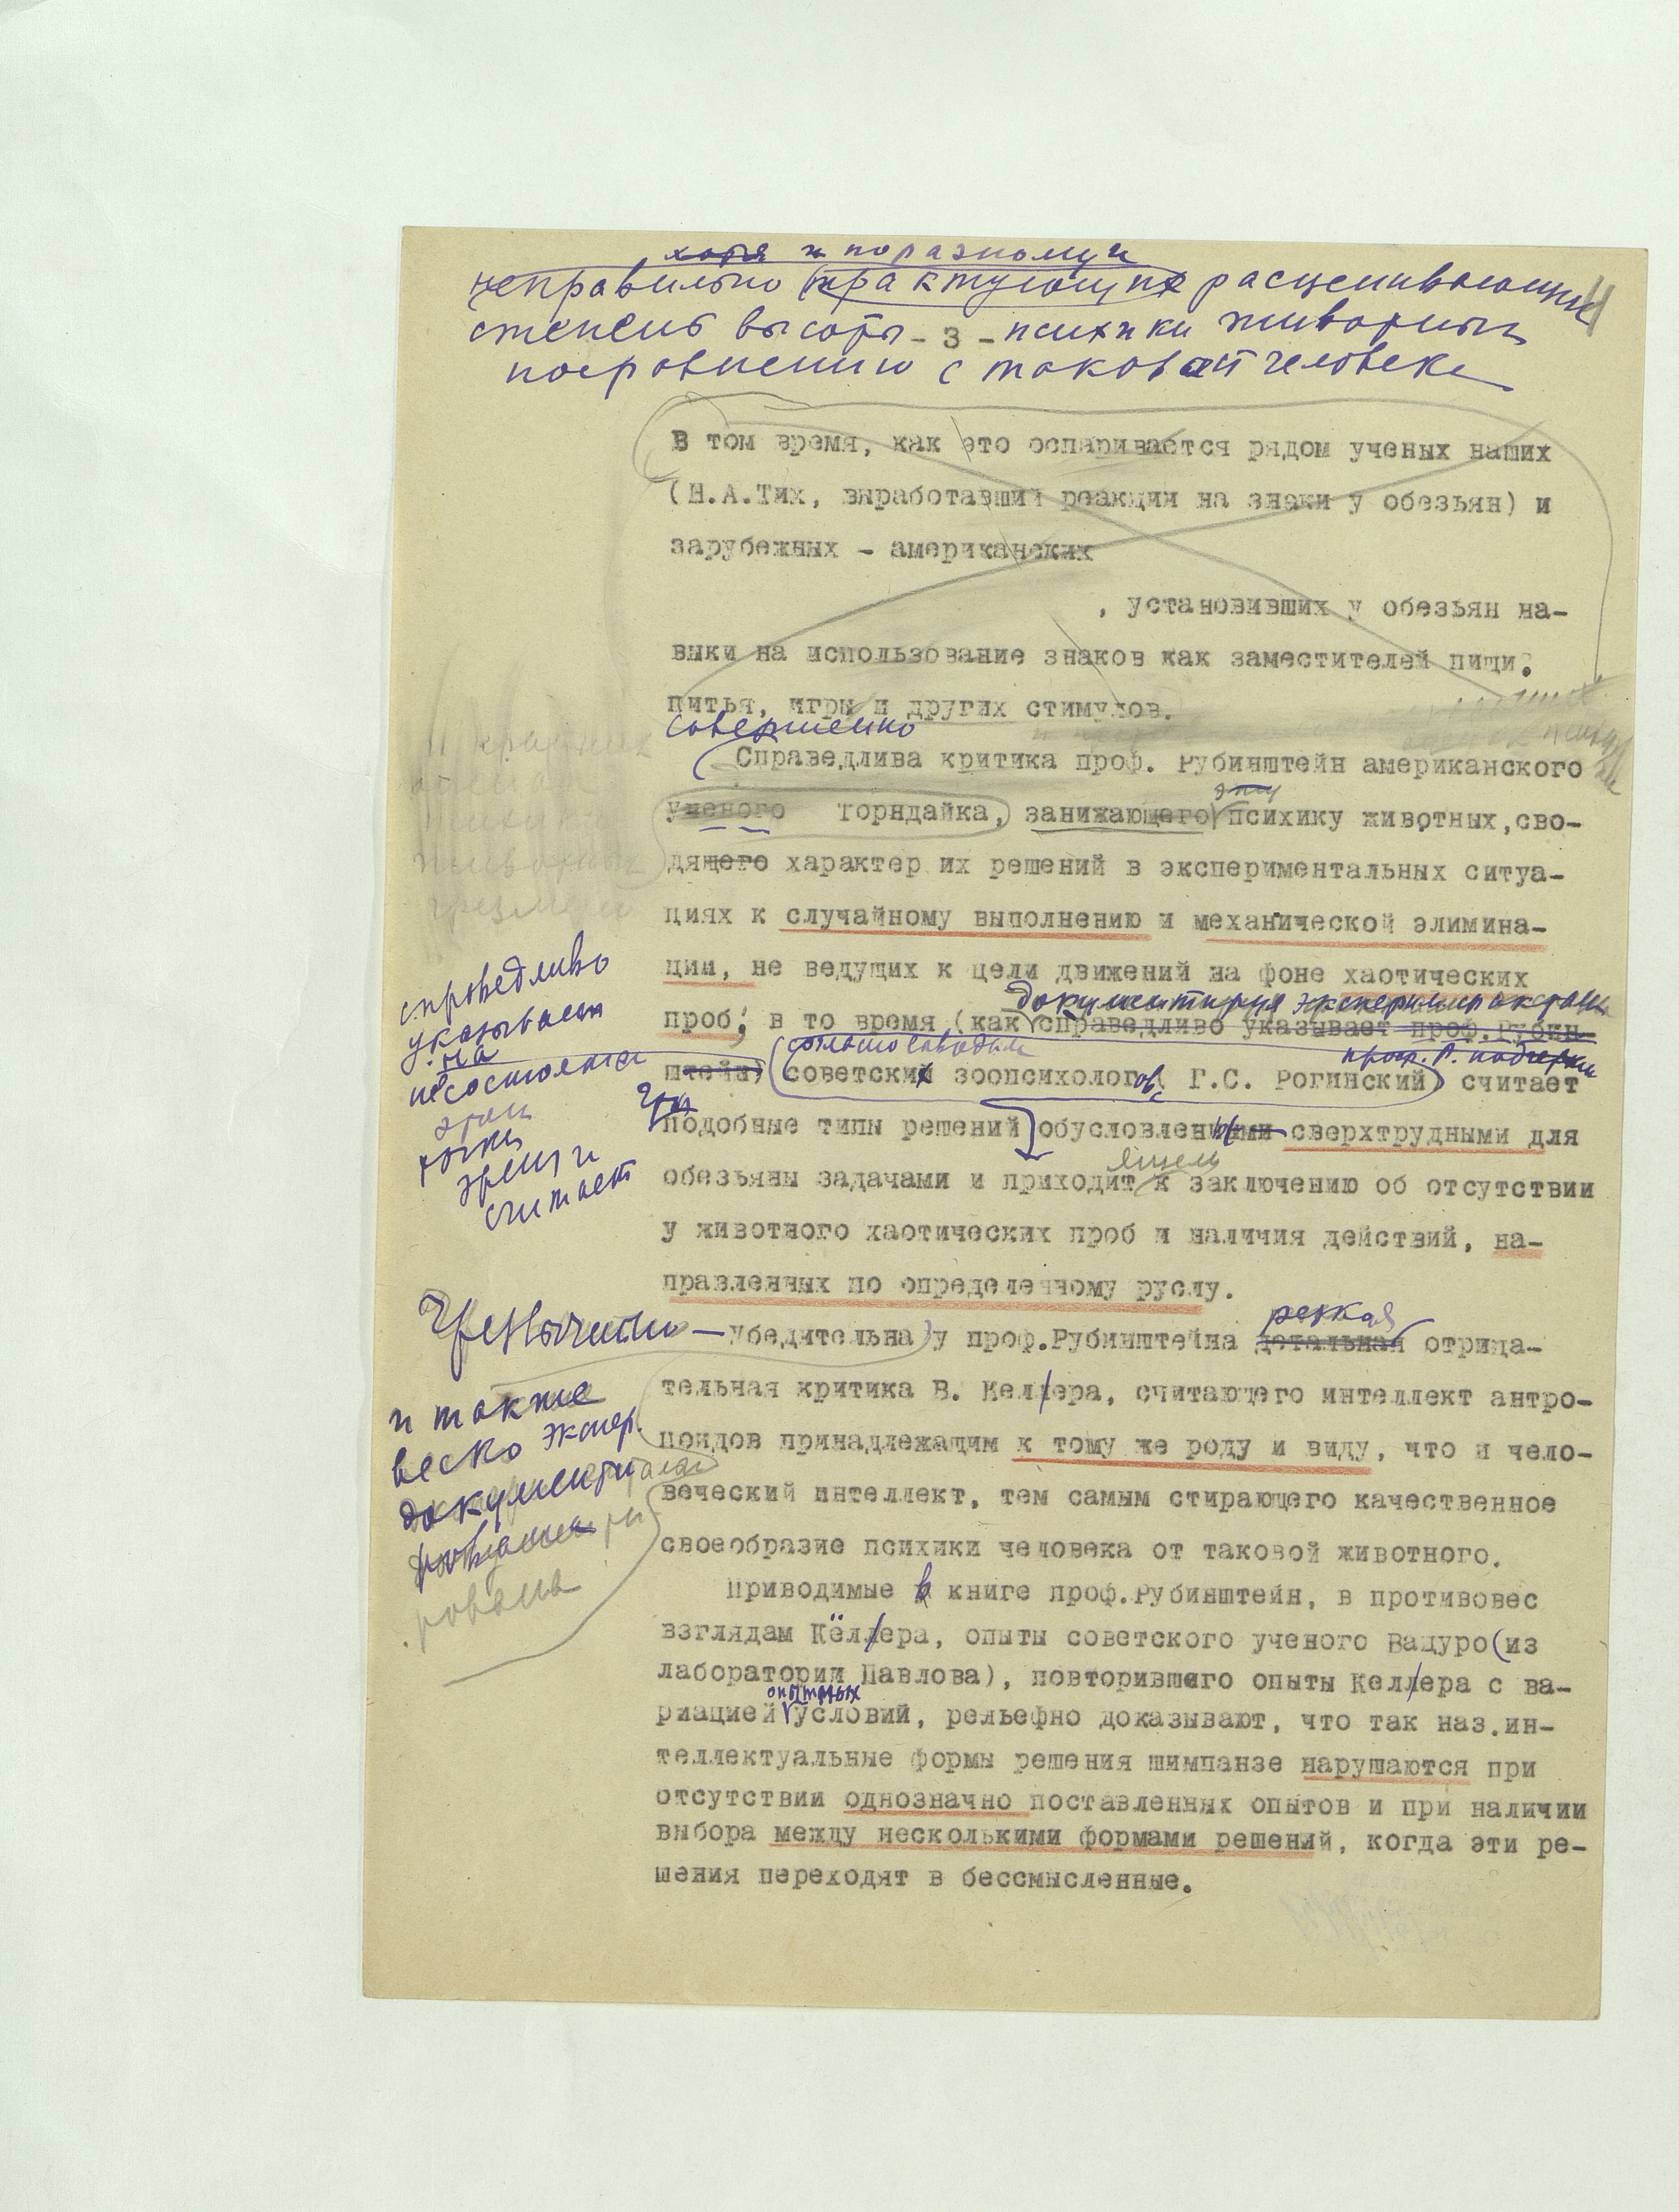 хотя и поразному и
неправильно (трактующих расценивающие
степень высоты - 3 - психики животных
по сравнению с таковой человека
В том время, как это оспаривается рядом ученых наших
(Н.А.Тих, выработавший реакции на знаки у обезьян) и
зарубежных - американских
, установивших у обезьян на-
выки на использование знаков как заместителей пищи.
питья, игры и других стимулов.
совершенно
Справедлива критика проф. Рубинштейн американского
эту
ученого Торндайка, занижающего психику животных, сво-
дящего характер их решений в экспериментальных ситуа-
циях к случайному выполнению и механической элимина-
ции, не ведущих к цели движений на фоне хаотических
документируя
проб; в то время (как справедливо указывает проф.Рубин-
штейн) советский зоопсихологов, Г.С. Рогинский) считает
подобные типы решений обусловленными сверхтрудными для
обезьяны задачами и приходит к заключению об отсутствии
у животного хаотических проб и наличия действий, на-
правленных по определенному руслу.
справедливо
указывает
на
несостоятел
этой
точки
зрения и
считает
резкая
Чрезвычайно — убедительна у проф.Рубинштейна детальная отрица-
тельная критика В. Келлера, считающего интеллект антро-
поидов принадлежащим к тому же роду и виду, что и чело-
веческий интеллект, тем самым стирающего качественное
своеобразие психики человека от таковой животного.
и также
веско экспер.
документи
рована
Приводимые в книге проф.Рубинштейн, в противовес
взглядам Кёллера, опыты советского ученого Вацуро (из
лаборатории Павлова), повторившего опыты Келлера с ва-
опытных
риацией условий, рельефно доказывают, что так наз.ин-
теллектуальные формы решения шимпанзе нарушаются при
отсутствии однозначно поставленных опытов и при наличии
выбора между несколькими формами решений, когда эти ре-
шения переходят в бессмысленные.